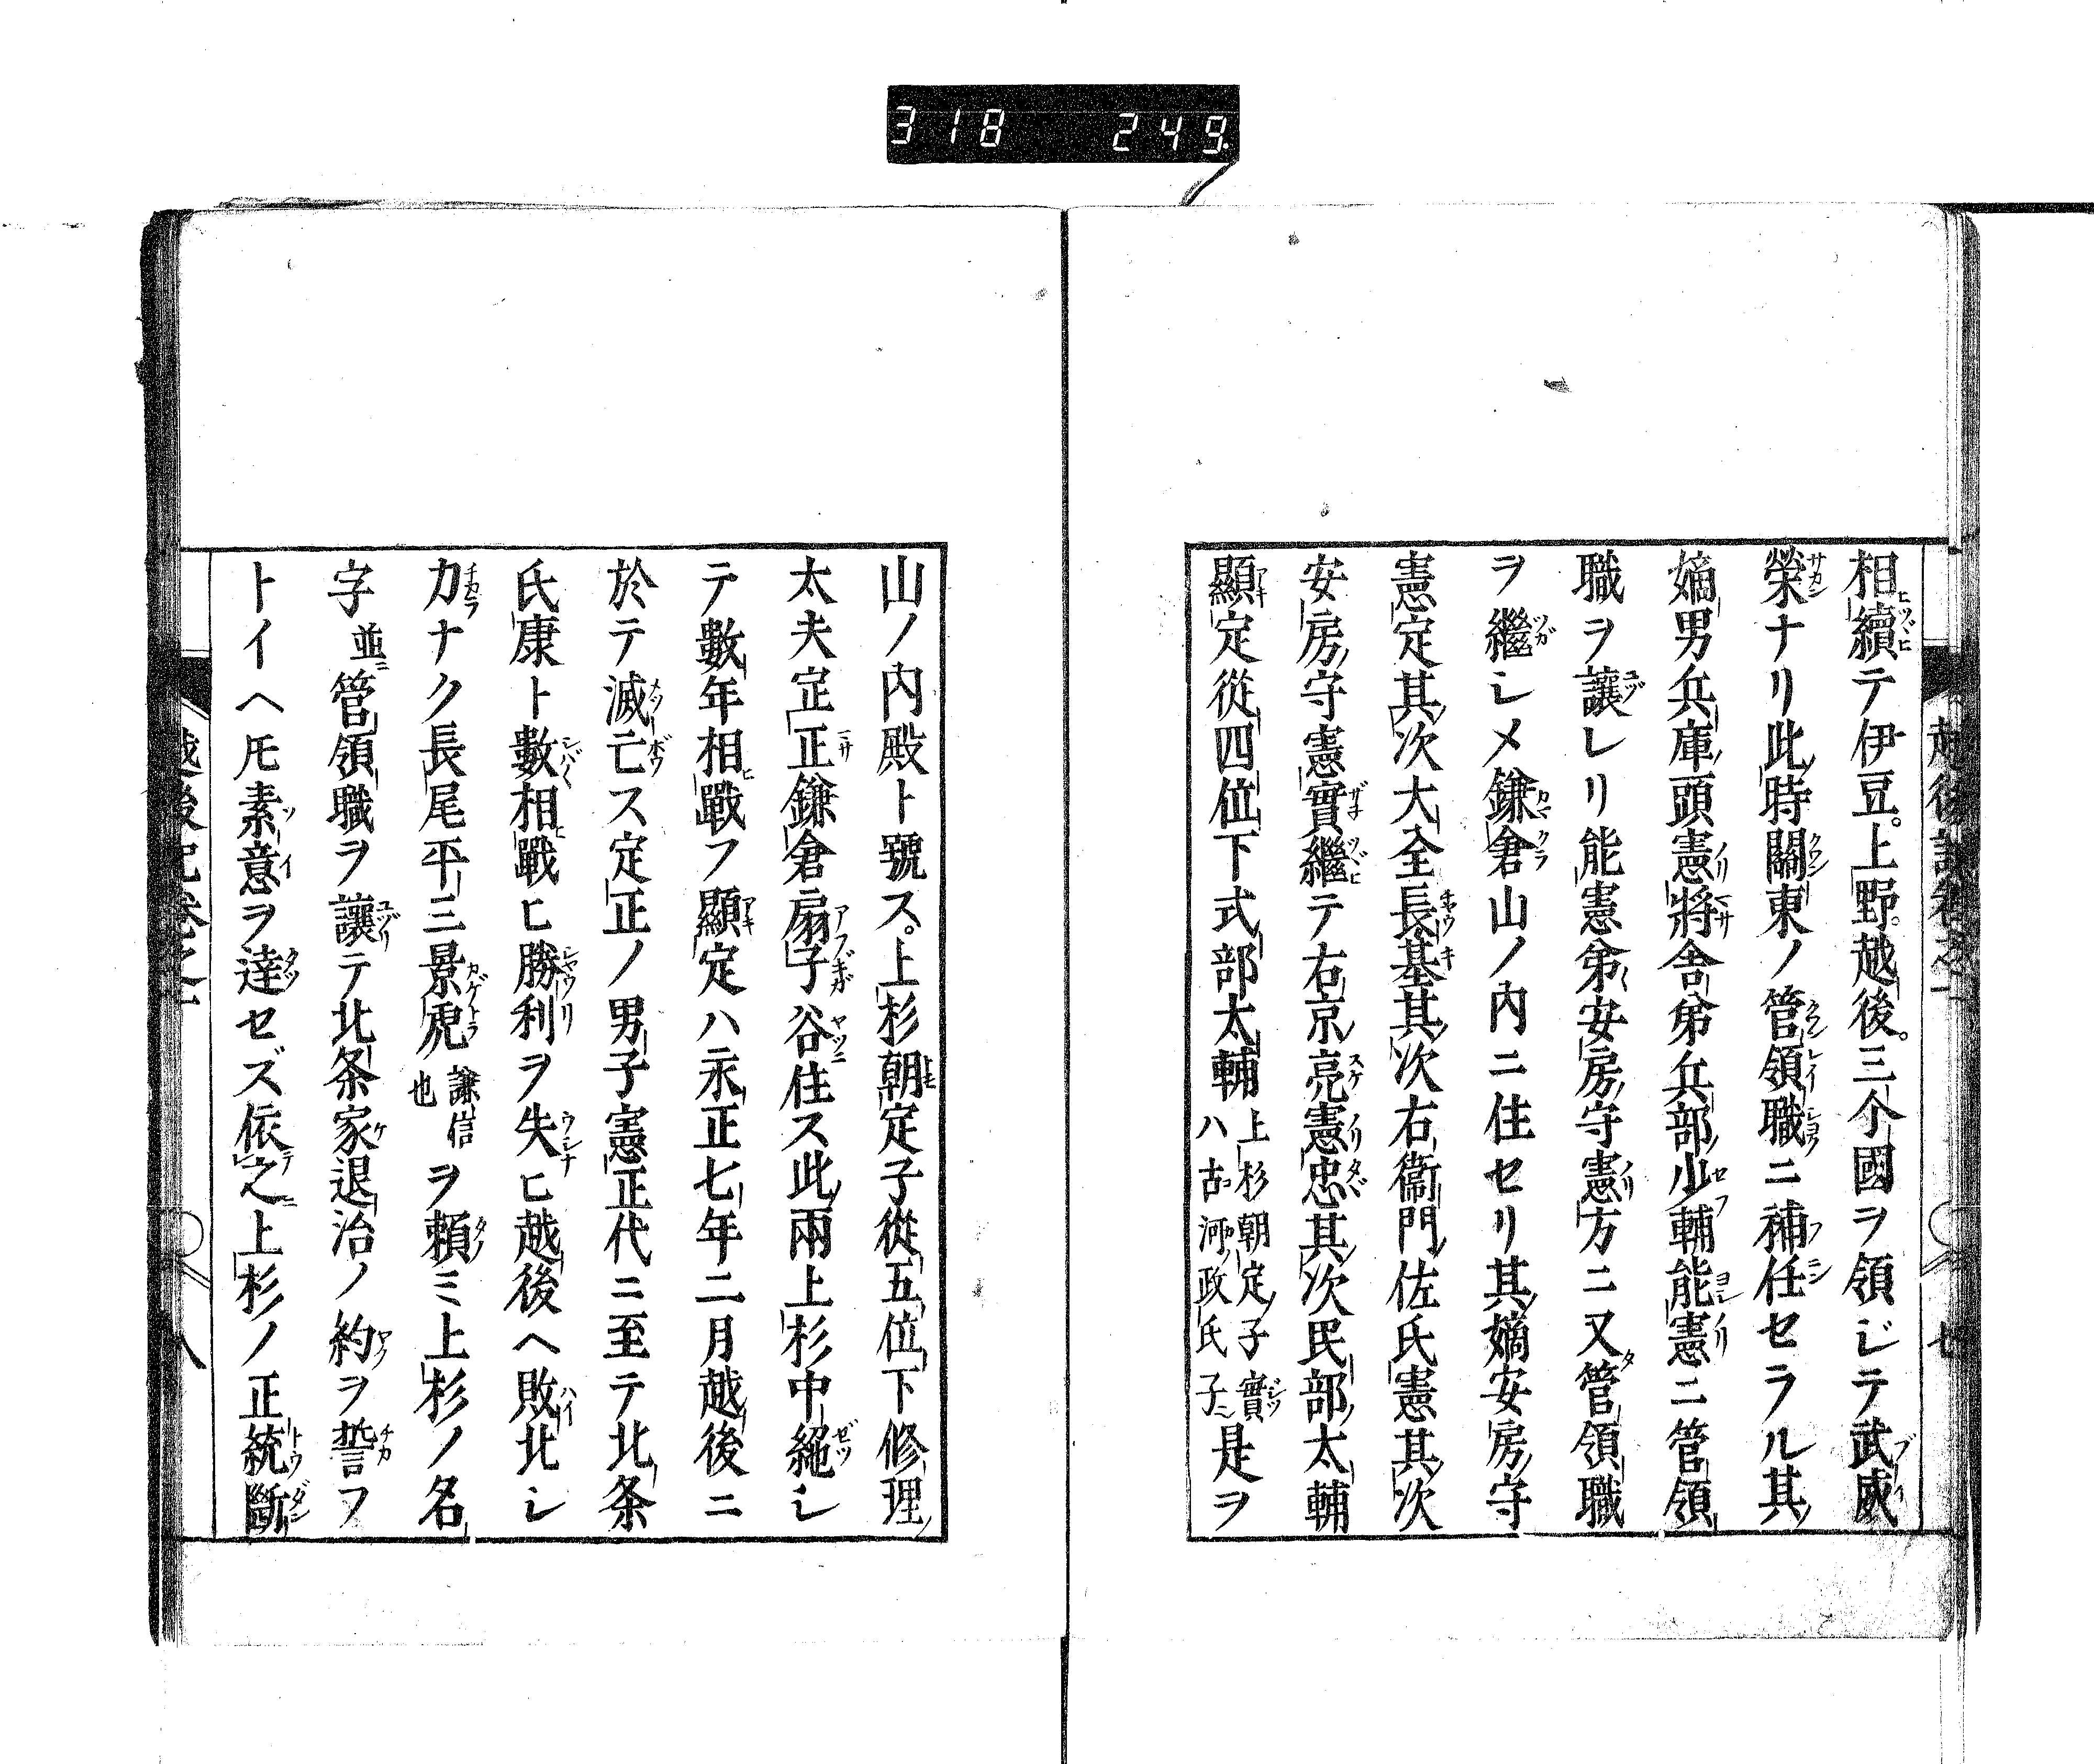 318 249
相續テ伊豆。上野。越後。三个國ヲ領ジテ武威
榮ナリ此時關東ノ管領職ニ補任セラル其
嫡男兵庫頭憲將舎弟兵部少輔能憲ニ管領
職ヲ讓レリ能憲弟安房守憲方ニ又管領職
ヲ繼シメ鎌倉山ノ内ニ住セリ其嫡安房守
憲定其次大全長基其次右衞門佐氏憲其次
安房守憲實繼テ右京亮憲忠其次民部太輔
顯定從四位下式部太輔上杉朝定子實ハ古河政氏子是ヲ
山ノ内殿ト號ス。上杉朝定子從五位下修理
太夫定正鎌倉扇子谷住ス此兩上杉中絕シ
テ數年相戰フ顯定ハ永正七年二月越後ニ
於テ滅亡ス定正ノ男子憲正代ニ至テ北条
氏康ト數相戰ヒ勝利ヲ失ヒ越後ヘ敗北シ
力ナク長尾平三景虎謙信也ヲ頼ミ上杉ノ名
字並管領職ヲ讓テ北条家退治ノ約ヲ誓フ
トイヘ𪜈素意ヲ達セズ依之上杉ノ正統斷